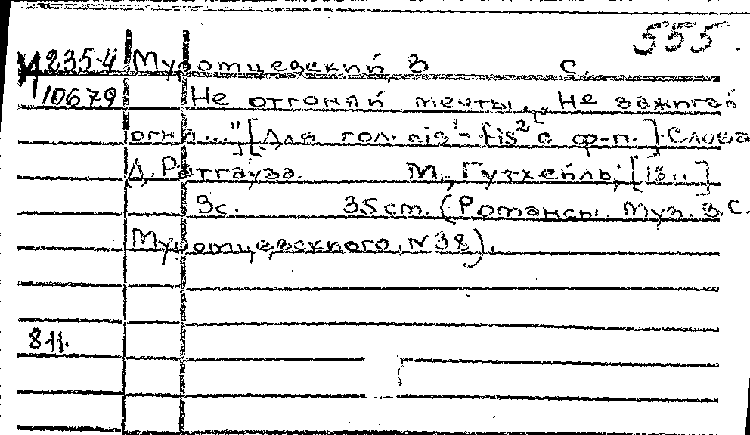 555.
И 235-4 Муромцевский, В С.
10679 Не отгоняй мечты... Не зажигай
огня..." [Для гол. cis¹-fis² с ф-п.] Слова
Д. Ратгауза. М., Гутхейль, [18..]
3с. 35 cm. (Романсы. Муз. В. С.
Муромцевского, N 38).
811.